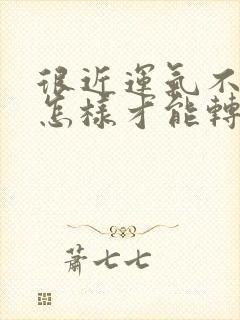 很近運氣不
怎樣才能轉
蕭七七